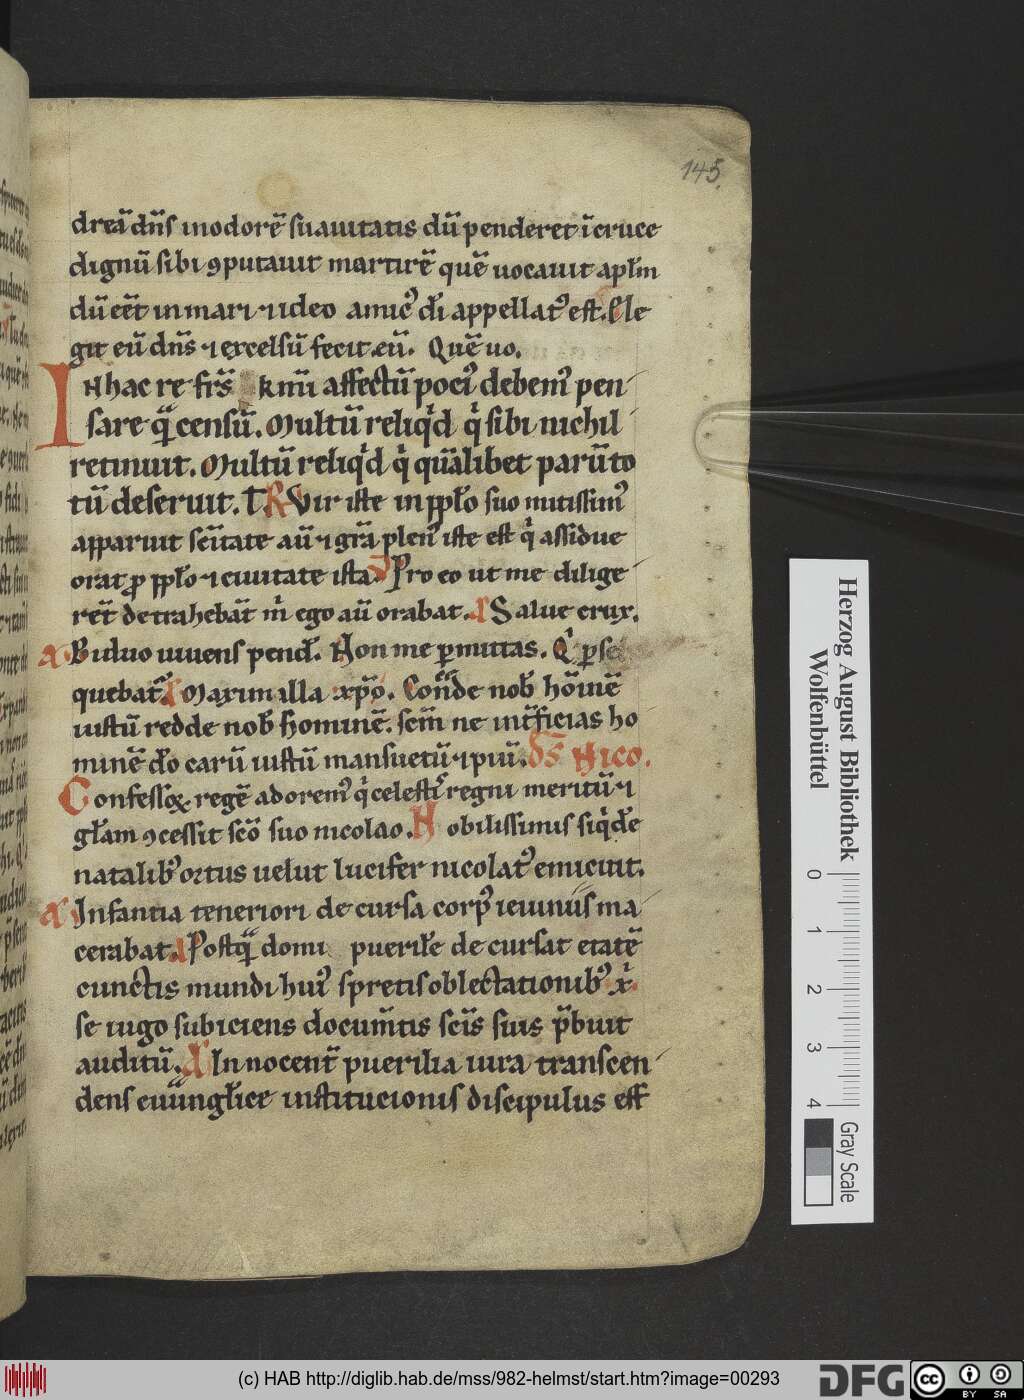 145.
dreā dn̄s inodorē suauitatis dū penderet ī cruce
dignū sibi ꝯputauit martirē quē uocauit apl̄m
dū cēt in mari ⁊ ideo amicꝰ dī appellatꝰ est. Ele
git eū dn̄s ⁊ excelsū fecit eū. Quē uo.
Inhac re fr̄s km̄i affectū pociꝰ debemꝰ pen
sare qͣ censū. Multū reliqͥd qͥ sibi nichil
retinuit. Multū reliqͥd qͥ quālibet parū to
tū deseruit. T R Vir iste in ppl̄o suo mitissimꝰ
apparuit sc̄itate aū ⁊ gr̄a plenꝰ iste est qͥ assidue
orat ꝓ ppl̄o ⁊ ciuitate ista. Pro eo ut me dilige
rēt detrahebāt m̄ ego aū orabat. Salue crux.
A Biduo uiuens pend̄. Non me ꝑmittas. Qͥ ꝑse
quebat᷑ Maximilla xp̄o. Con̄de nob̄ hōmīē
iustū redde nob̄ hominē. sem̄ ne int̄ficias ho
minē do carū iustū mansuetū ⁊ piū. DS NICO.
Confessoꝝ regē adoremꝰ qͥ celestiͣ regni meritū ⁊
gl̄am ꝯcessit sc̄o suo nicolao. Nobilissimis siqͥdē
natalibꝰ ortus uelut lucifer nicolatꝰ emicuit.
A Infantia teneriori de cursa corpꝰ ieiuniis ma
cerabat. Postqͣ domi puerile de cursat etatē
cunctis mundi huiꝰ spretis oblectationibꝰ x̄
se iugo subiciens documētis sc̄is suis p̄buit
auditū. A Innocent᷑ puerilia iura transcen
dens euūngl̄ice institucionis discipulus eff
Herzog August Bibliothek
Wolfenbüttel
0 1 2 3 4
Gray Scale
(c) HAB http://diglib.hab.de/mss/982-helmst/start.htm?image=00293
DFG
cc BY SA